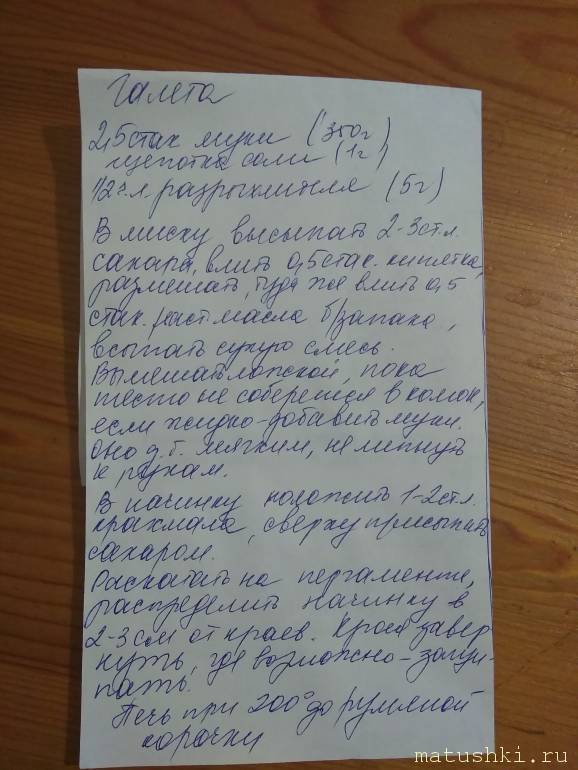 Галета
2,5 стак муки (350г)
щепотка соли (1г)
1/2 ч.л. разрыхлителя (5г)
В миску высыпать 2-3 ст.л.
сахара, влить 0,5 стак. кипятка,
размешать, туда же влить 0,5
стак. раст. масла б/запаха,
всыпать сухую смесь.
Вымешать ложкой, пока
тесто не соберется в комок,
если жидко - добавить муки.
Оно д.б. мягким, не липнуть
к рукам.
В начинку положить 1-2 ст.л.
крахмала, сверху присыпать
сахаром.
Раскатать на пергаменте,
распределить начинку в
2-3 см от краев. Края завер
нуть, где возможно - защи-
пать.
Печь при 200° до румяной
корочки
matushki.ru